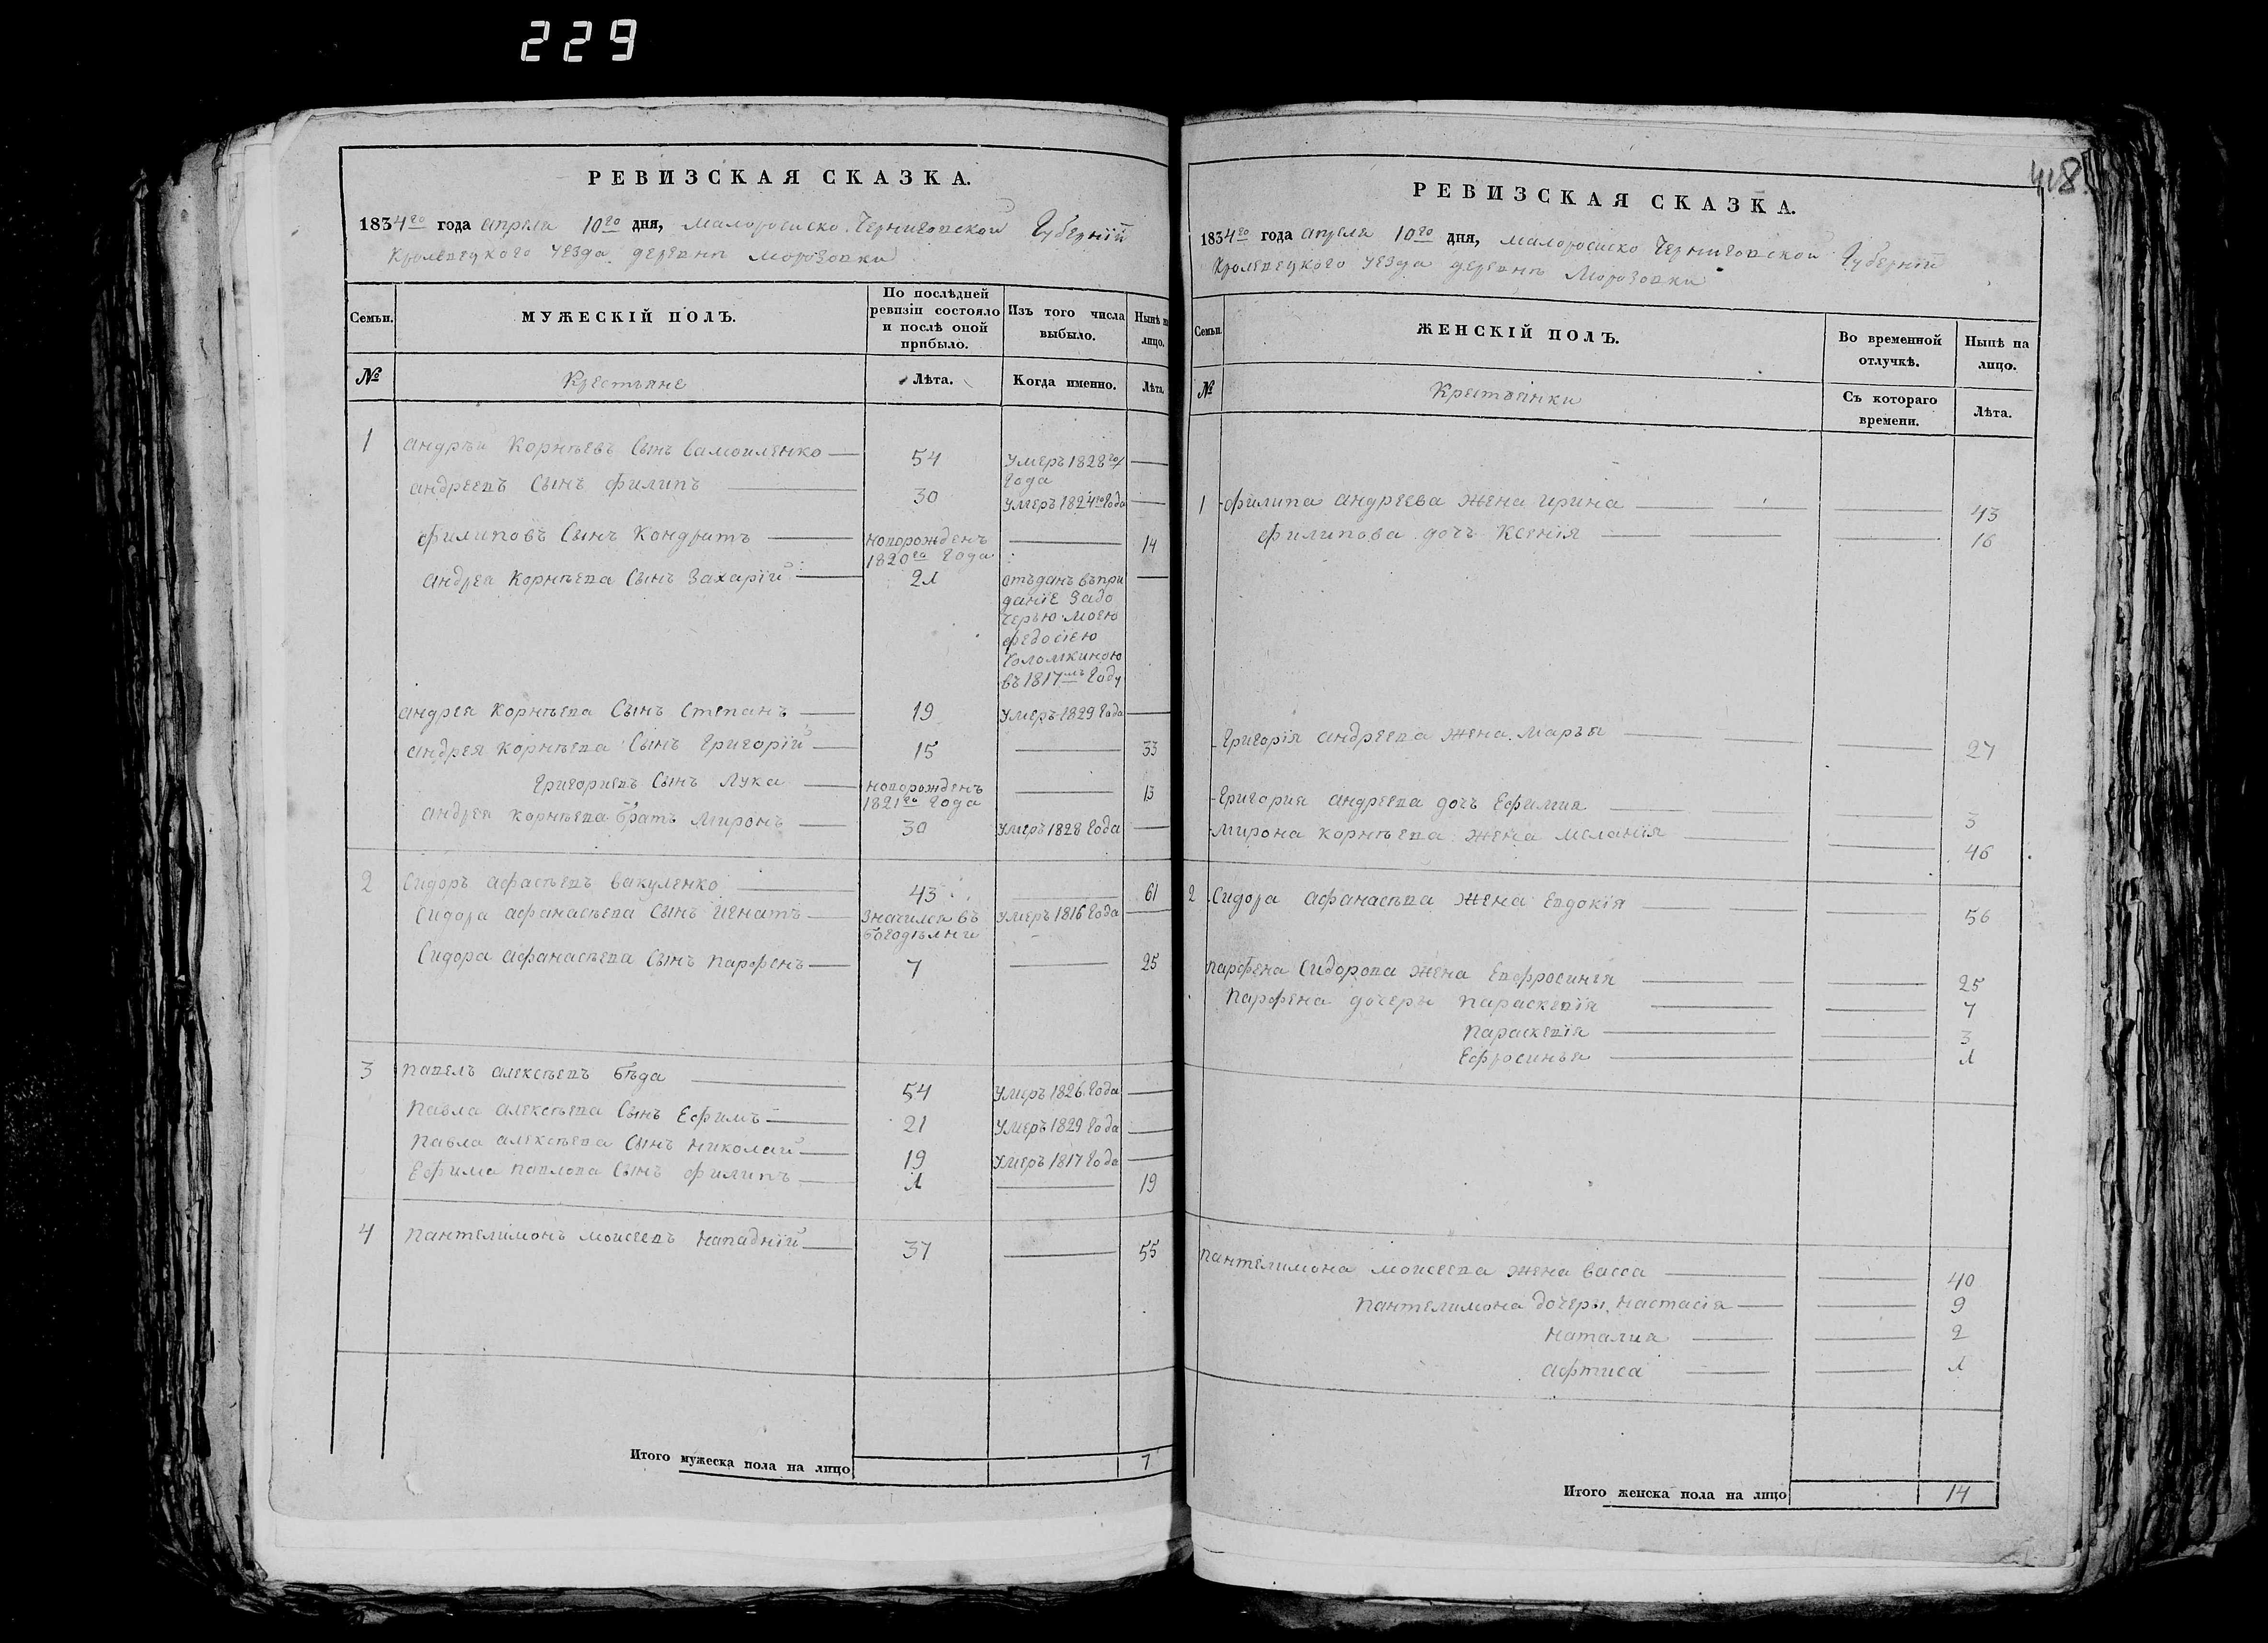 229
РЕВИЗСКАЯ СКАЗКА.
1834го года апреля 10го дня, Малоросиско Черниговской Губернїй
Кролевецкого уезда деревнѣ Морозовки
Семьи.
МУЖЕСКІЙ ПОЛЪ.
По послѣдней ревизіи состояло и послѣ оной прибыло.
Изъ того числа выбыло.
Нынѣ на лицо.
№
Крестьяне
Лѣта.
Когда именно.
Лѣта.
1 андрѣи Корнѣевъ Сынъ Самоиленко — 54 Умеръ 1828го Года —
андреевъ Сынъ филипъ — 30 Умеръ 1824го Года —
филиповъ Сынъ Кондратъ — новорожденъ 1820го Года — 14
андрея Корнѣева Сынъ Захарїй — 2л отъданъ въпри
данїе Задо
черью моею
федосїею
в 1817мъ Году —
андрея Корнѣева Сынъ Степанъ — 19 Умеръ 1829 Года —
андрея Корнѣева Сынъ Григорїй — 15 — 33
Григориевъ Сынъ Лука — новорожденъ 1821го Года — 13
андрея Корнѣева братъ Миронъ — 30 Умеръ 1828 Года —
2 Сидоръ афасѣевъ вакуленко — 43 — 61
Сидора афанасѣева Сынъ Игнатъ — Значился въ богодѣлни Умеръ 1816 Года —
Сидора афанасѣева Сынъ парфенъ — 7 — 25
3 павелъ алексѣевъ бѣда — 54 Умеръ 1826 Года —
павла алексѣева Сынъ Ефимъ — 21 Умеръ 1829 Года —
павла алексѣева Сынъ николай — 19 Умеръ 1817 Года —
Ефима павлова Сынъ филипъ — л — 19
4 пантелимонъ моисеевъ нападнїй — 37 — 55
Итого мужеска пола на лицо 7
418
РЕВИЗСКАЯ СКАЗКА.
1834го года апреля 10го дня, малоросиско Черниговской Губернїй
Кролевецкого уезда деревнѣ Морозовки
Семьи.
ЖЕНСКІЙ ПОЛЪ.
Во временной отлучкѣ.
Нынѣ на лицо.
№
Крестьянки
Съ котораго времени.
Лѣта.
1 филипа андреева жена ирина — — 43
филипова дочъ Ксенїя — — 16
Григорїя андреева жена марья — — 27
Григория андреева дочъ Ефимия — — 3
Мирона корнѣева жена меланїя — — 46
2 Сидора афанасѣва жена Евдокїя — — 56
парфена Сидорова жена Евфросинїя — — 25
парфена дочеры параскевїя — — 7
параскевїя — — 3
Ефросинья — — л
пантелимона моисеева жена васса — — 40
пантелимона дочеры настасїя — — 9
наталия — — 2
афтиса — — л
Итого женска пола на лицо 14